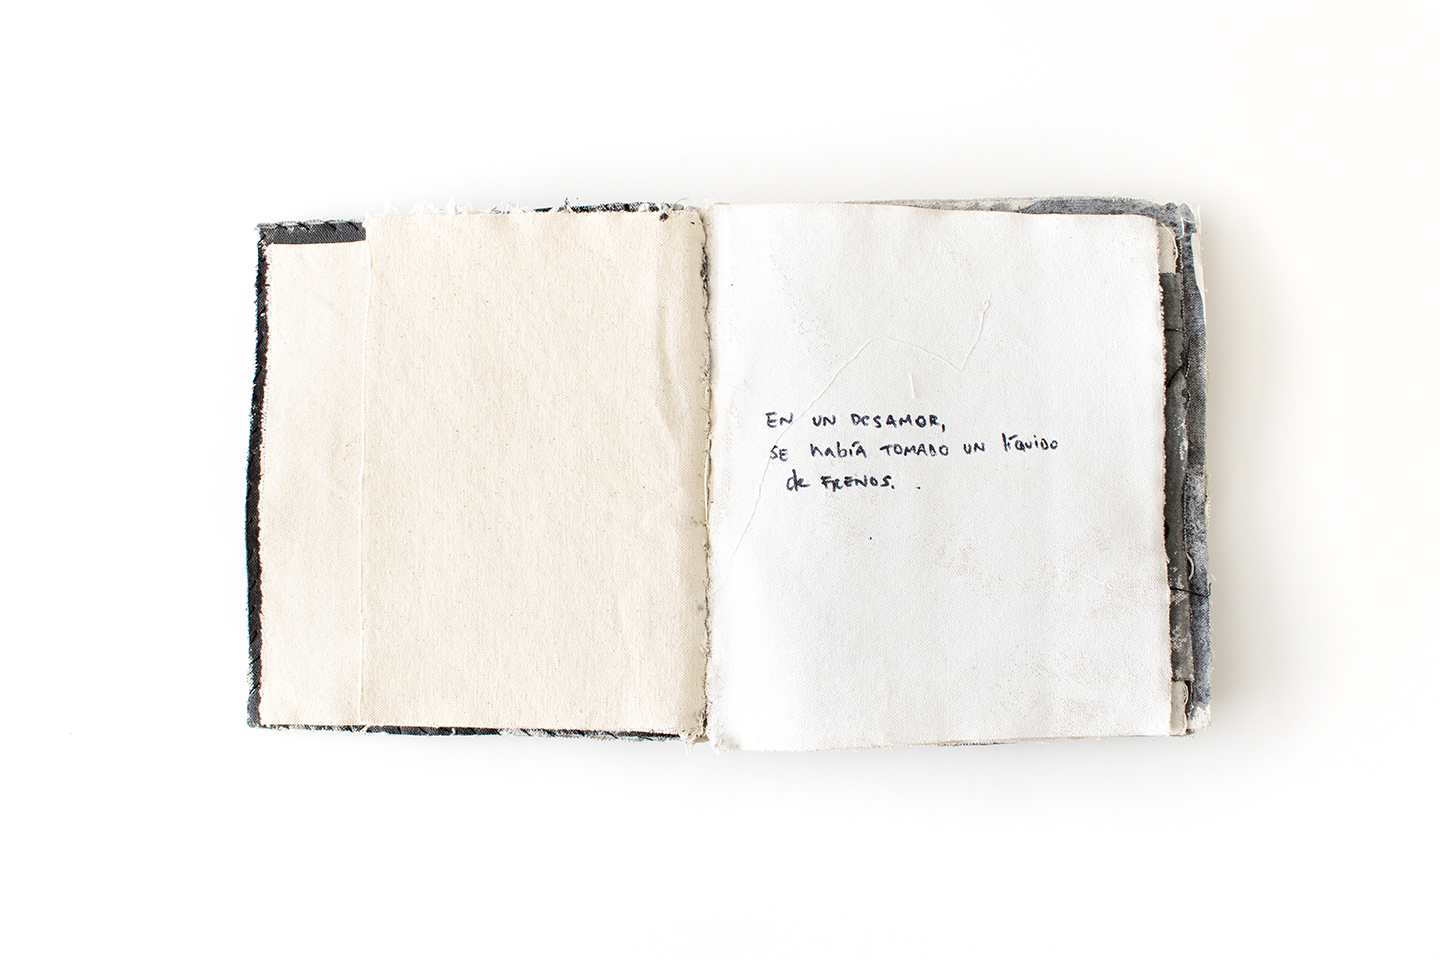 EN UN DESAMOR,
SE había TOMADO UN líQUIDO
de FRENOS.